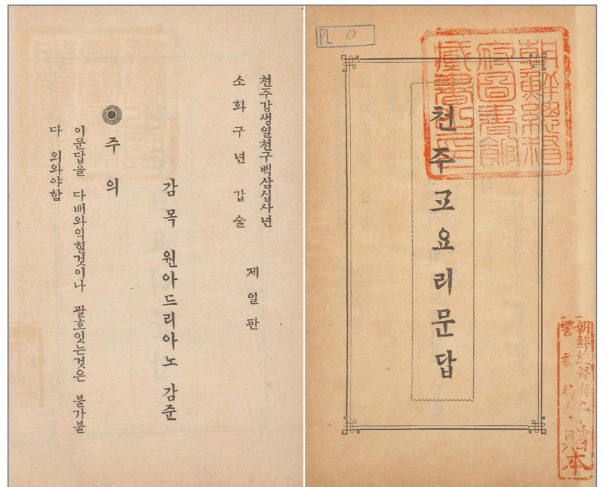 PL 0
朝鮮總督
府圖書館
藏書之印
천주교요리문답
천주강생일천구백삼십사년
소화구년 갑술 제일판
감목 원아드리아노 감준
주의
이문답을 다배와익힐것이나 팔호잇는것은 불가불
다 외와야함